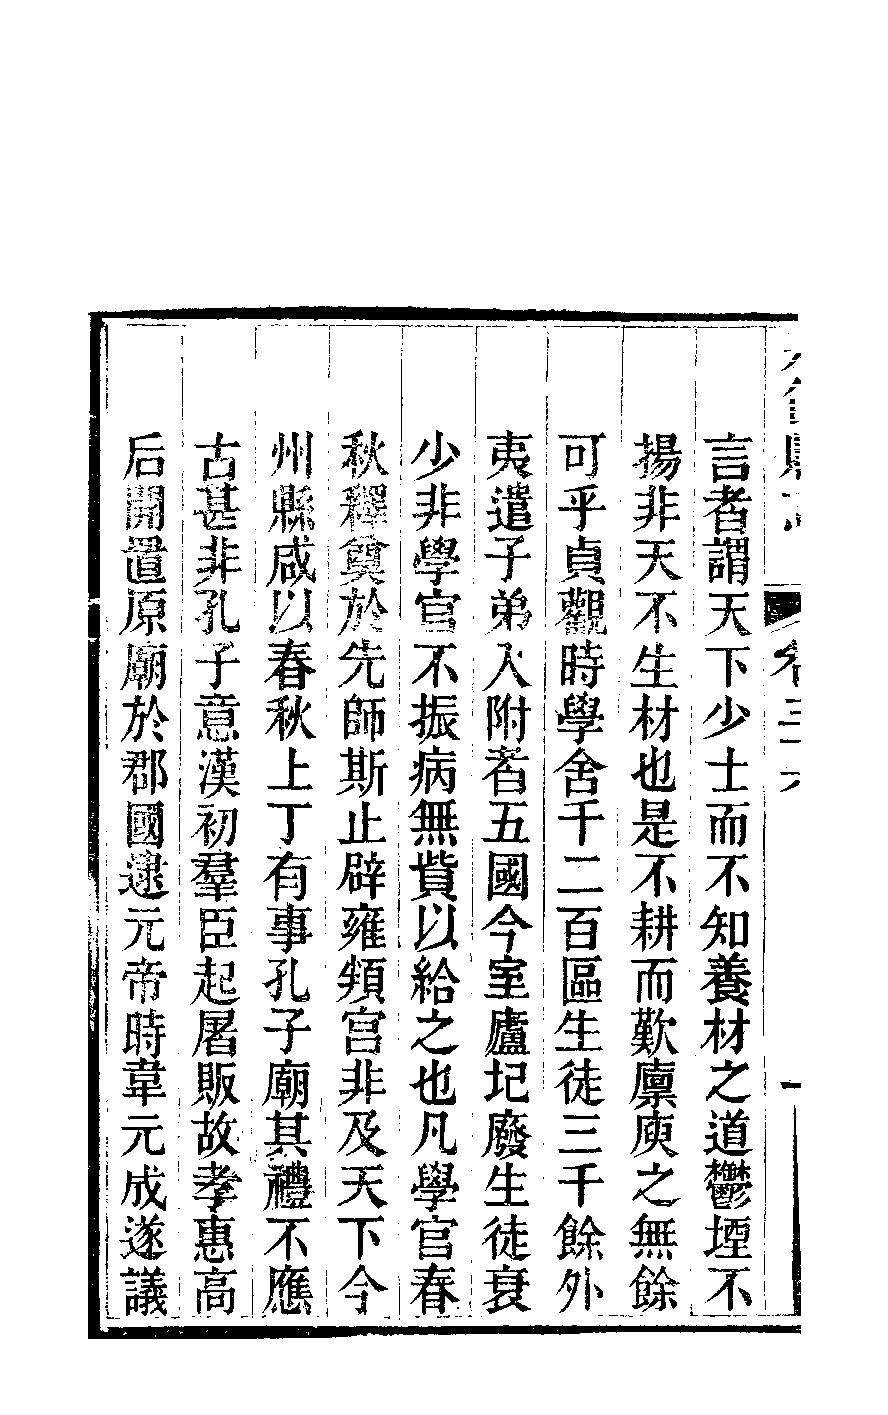 言者謂天下少士而不知養材之道鬱堙不
揚非天不生材也是不耕而歎廩庾之無餘
可乎貞觀時學舍千二百區生徒三千餘外
夷遣子弟入附者五國今室廬圮廢生徒衰
少非學官不振病無貲以給之也凡學官春
秋釋奠於先師斯止辟雍頖宮非及天下今
州縣咸以春秋上丁有事孔子廟其禮不應
古甚非孔子意漢初羣臣起屠販故孝惠高
后開置原廟於郡國逮元帝時韋元成遂議